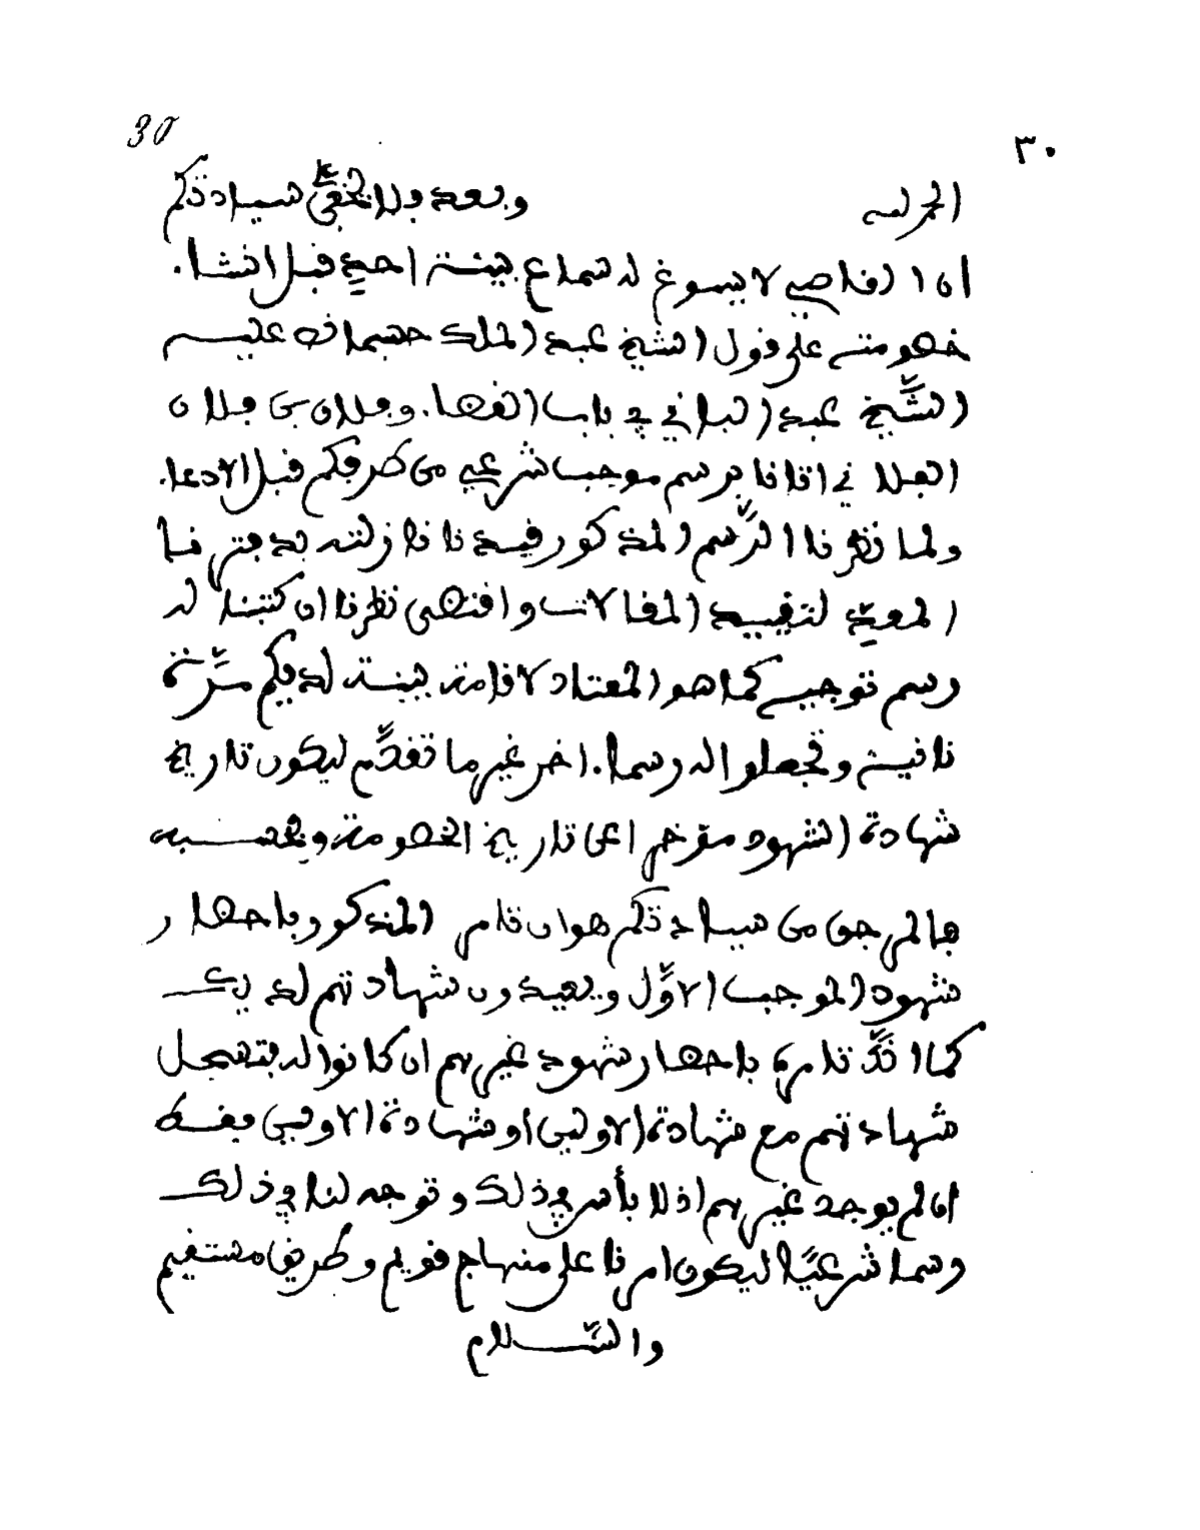 30
٣٠
الحمد لله وبعد فلا يخفى سيادتكم
ان القاضي لا يسوغ له سماع بينة احد قبل انشاء
خصومته على قول الشيخ عبد الملك حسبما نص عليه
الشَّيخ عبد الباقي في باب القضاء وفلان بن فلان
الفلاني اتانا برسم موجب شرعي من طرفكم قبل الادعاء
ولما نظرنا الرَّسم المذكور قيدنا نازلته بدفترنا
المعدّ لتقييد المقالات واقتضى نظرنا ان كتبنا له
رسم توجيه كما هو المعتاد لاقامة بينة لديكم مرَّة
ثانية وتجعلوا له رسما اخر غير ما تقدَّم ليكون تاريخ
شهادة الشهود مؤخرا عن تاريخ الخصومة وبحسبه
فالمرجو من سيادتكم هو ان تامر المذكور باحضار
شهود الموجب الاوَّل ويعيدون شهادتهم لديك
كما انَّك تامره باحضار شهود غيرهم ان كانوا له فتسجل
شهادتهم مع شهادة الاولين او شهادة الاولين فقط
ان لم يوجد غيرهم اذ لا بأس في ذلك وتوجه لنا في ذلك
رسما شرعيًّا ليكون امرنا على منهاج قويم وطريق مستقيم
والسَّلام